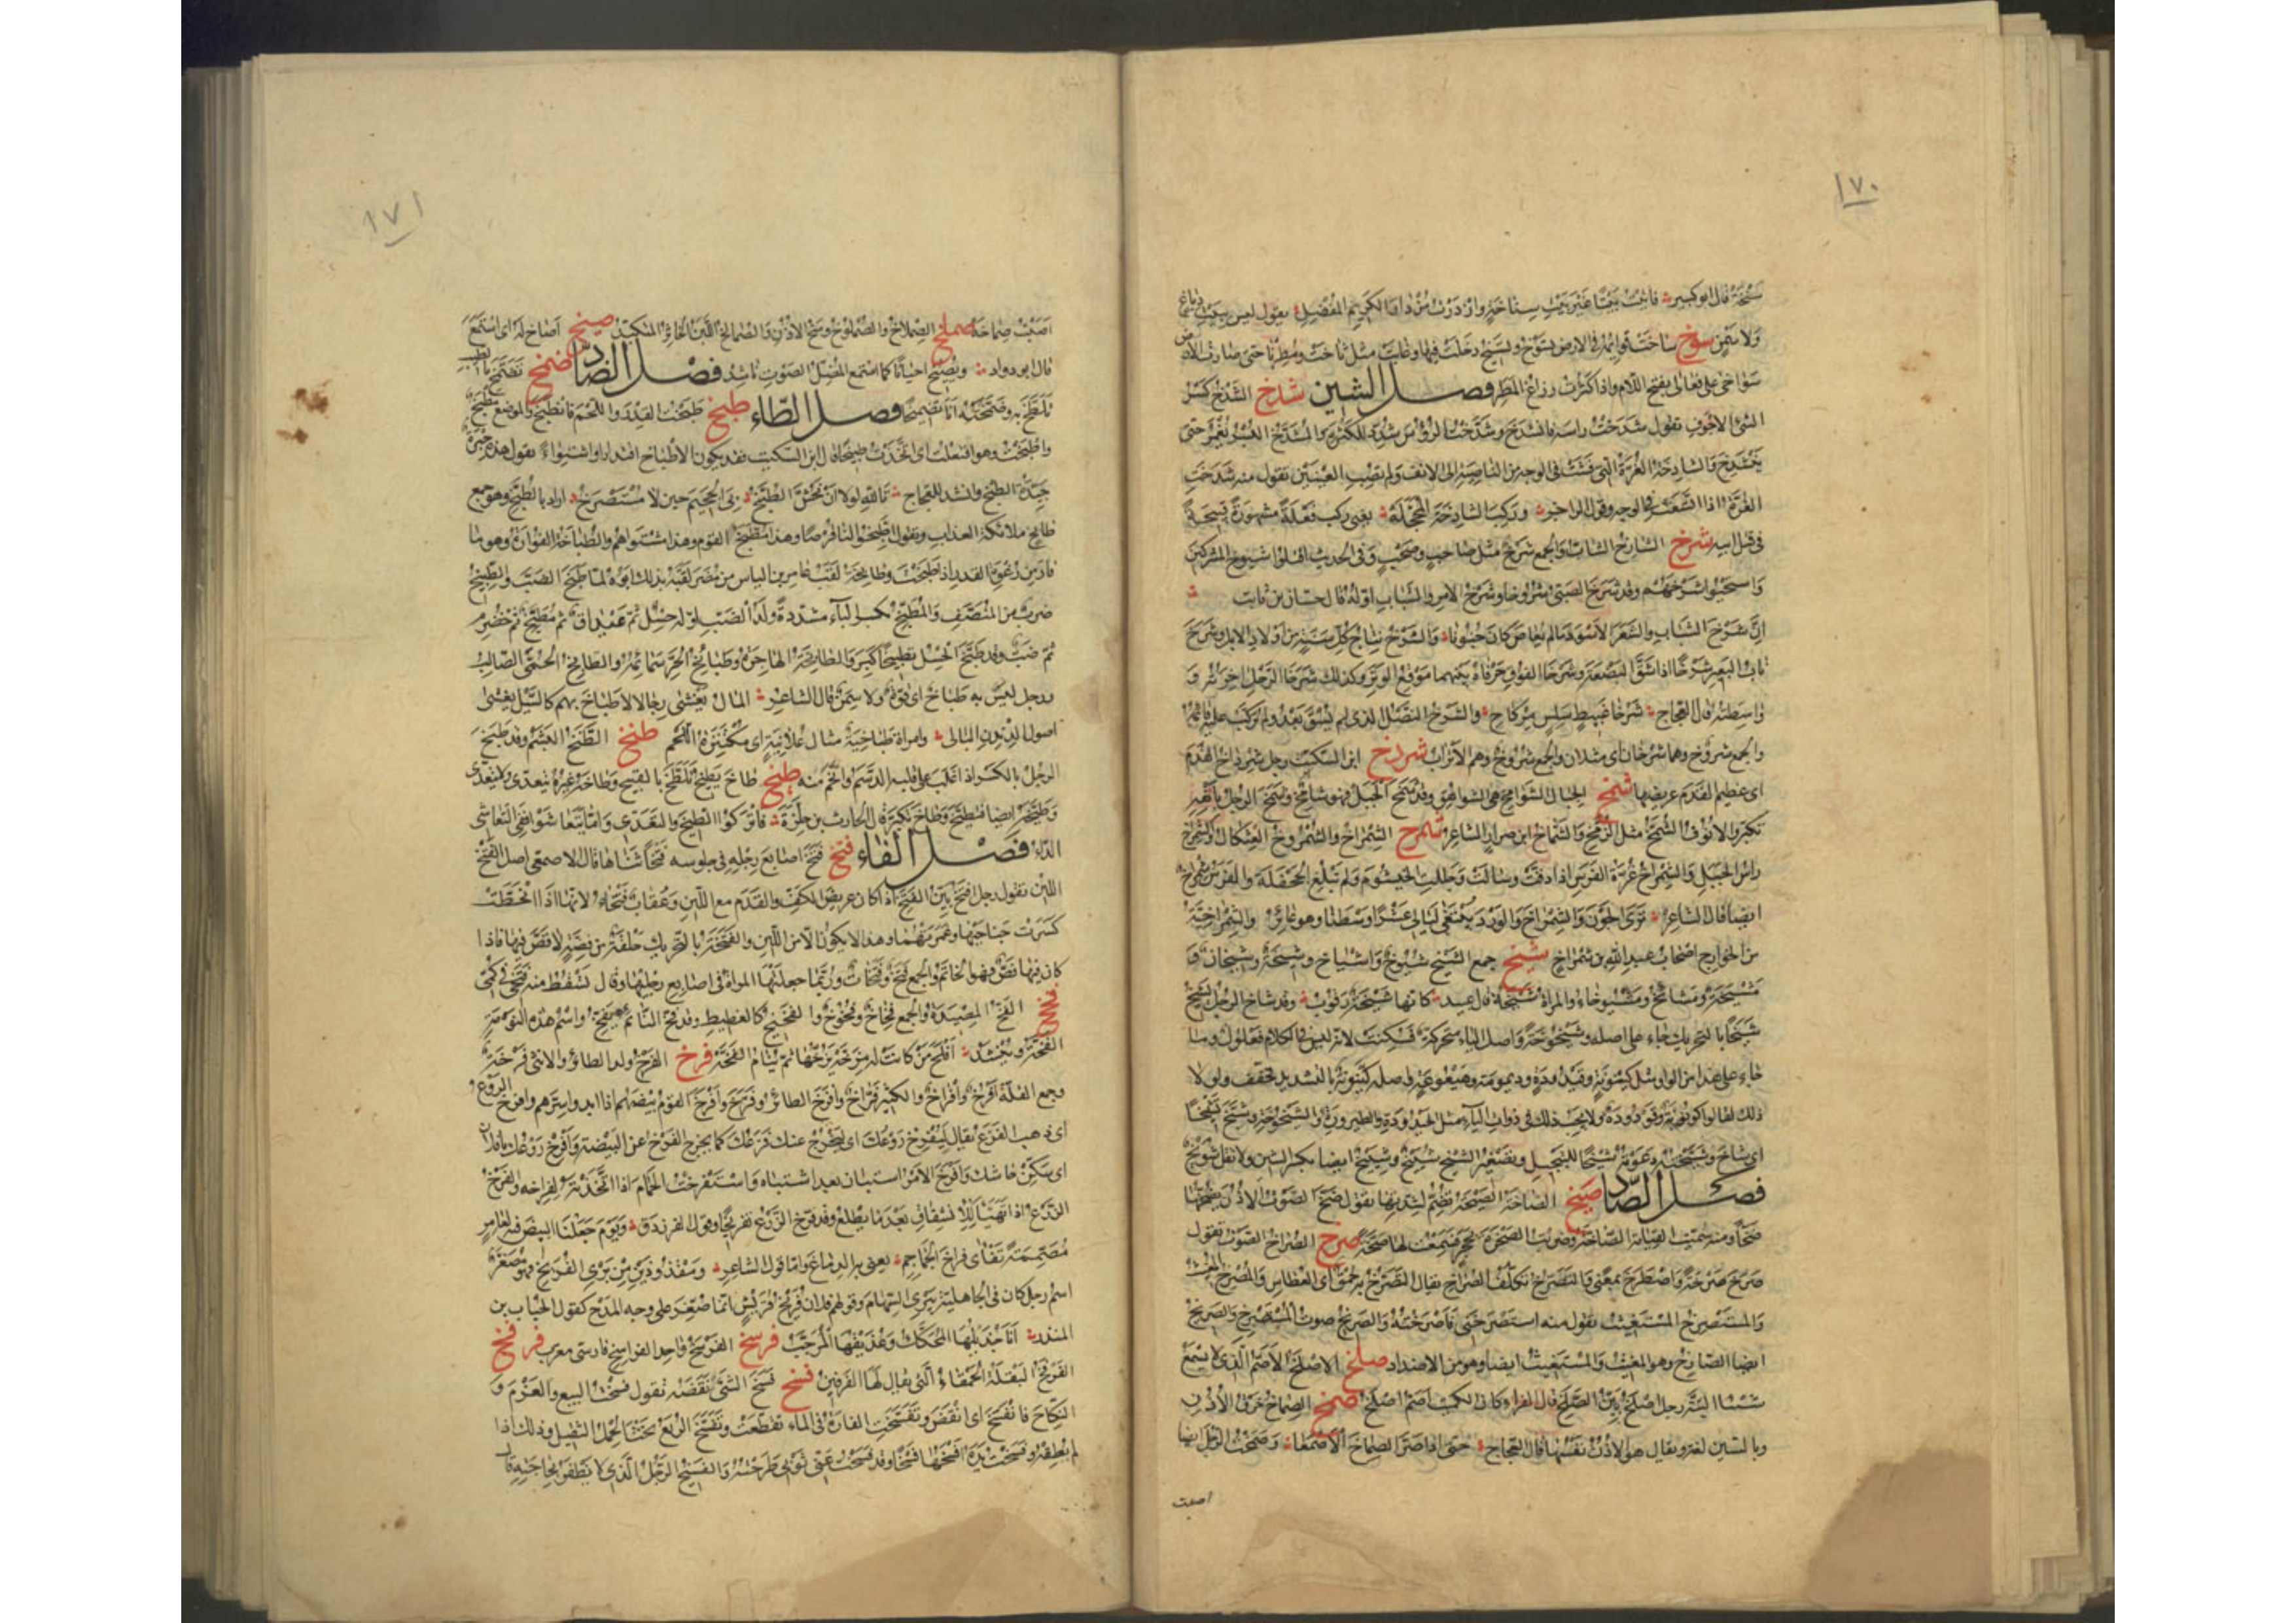 ١٧٠
سَنِخَةٌ قال ابو كبير فاتيت بيتا غير بيت سناخة وازدرت مزدار الكريم المفضل يقول ليس ببيت دباغ
ولا سمن سوخ ساخت قوائمه في الارض تسوخ وتسيخ دخلت فيها وغابت مثل ثاخت ومطرنا حتى صارت الارض
سواخى على فعالى بفتح اللام واذا كثرت رزاغ المطر فصل الشين شدخ الشدخ كسر
الشئ الاجوف تقول شدخت راسه فانشدخ وشدخت الرؤس شدد للكثرة والمشدخ البسر يغمز حتى
ينشدخ والشادخة الغرة التي فشت في الوجه من الناصية الى الانف ولم تصب العينين تقول منه شدخت
الغرة اذا اتسعت في الوجه وقول الراجز وركب الشادخة المحجلة يعني ركب فعلة مشهورة قبيحة
في قتل ابيه شرخ الشارخ الشاب والجمع شرخ مثل صاحب وصحب وفي الحديث اقتلوا شيوخ المشركين
واستحيوا شرخهم وقد شرخ الصبي شروخا وشرخ الامر والشباب اوله قال حسان بن ثابت
ان شرخ الشباب والشعر الاسود ما لم يعاص كان جنونا والشرخ نتاج كل سنة من اولاد الابل وشرخ
ناب البعير شرخا اذا شق البضعة وشرخا الفوق حرفاه بينهما موقع الوتر وكذلك شرخا الرحل اخرته و
واسطته قال العجاج شرخا غبيط سلس مركاح والشرخ النصل الذي لم يسق بعد ولم يركب عليه قائمه
والجمع شروخ وهما شرخان اي مثلان والجمع شروخ وهم الاتراب شرداخ ابن السكيت رجل شرداخ القدم
اي عظيم القدم عريضها شمخ الجبال الشوامخ هي الشواهق وقد شمخ الجبل فهو شامخ وشمخ الرجل بانفه
تكبر والانوف الشمخ مثل الزمخ والشماخ ابن ضرار الشاعر شمرخ الشمراخ والشمروخ العثكال والشمراخ
راس الجبل والشمراخ غرة الفرس اذا دقت وسالت وجللت الخيشوم ولم تبلغ الجحفلة والفرس شمراخ
ايضا قال الشاعر ترى الجون والشمراخ والورد يبتغى ليالي عشرا وسطنا وهو عائر والشمراخية
من الخوارج اصحاب عبد الله بن شمراخ شيخ جمع الشيخ شيوخ واشياخ وشيخة وشيخان و
مشيخة ومشائخ ومشيوخاء والمراة شيخة قال عبيد كانها شيخة رقوب وقد شاخ الرجل يشيخ
شيخا بالتحريك جاء على اصله وشيخوخة واصل الياء متحركة فسكنت لانه ليس في الكلام فعلول وما
جاء على هذا من الواو مثل كينونة وقيدودة وديمومة وهيعوعة فاصله كينونة بالتشديد فخفف ولولا
ذلك لقالوا كونونة وقودودة ولا يجب ذلك في ذوات الياء مثل الحيدودة والطيرورة والشيخوخة وشيخ تشييخا
اي شاخ وشيخته دعوته شيخا للتبجيل وتصغير الشيخ شييخ وشييخ ايضا بكسر الشين ولا تقل شويخ
فصل الصاد صخخ الصاخة الصيحة تصم لشدتها تقول صخ الصوت الاذن يصخها
صخا ومنه سميت القيامة الصاخة وضربت الصخرة بحجر فسمعت لها صخة صرخ الصراخ الصوت تقول
صرخ صرخة واصطرخ بمعنى والتصرخ تكلف الصراخ يقال التصرخ به حمق اي العطاس والمصرخ المغيث
والمستصرخ المستغيث تقول منه استصرخني فاصرخته والصريخ صوت المستصرخ والصريخ
ايضا الصارخ وهو المغيث والمستغيث ايضا وهو من الاضداد صلخ الاصلخ الاصم الذي لا يسمع
شيئا البتة رجل اصلخ بين الصلخ قال الفراء كان الكميت اصم اصلخ صمخ الصماخ خرق الاذن
وبالسين لغة ويقال هو الاذن نفسها قال العجاج حتى اذا صر الصماخ الاصمعا وصمخت الرجل ايضا
اصبت
١٧١
اصبت صماخه صملخ الصملاخ والصملوخ وسخ الاذن والصمالخ اللبن الخاثر المتكبد صيخ اصاخ له اي استمع
قال ابو دواد ويصيخ احيانا كما استمع المضل لصوت ناشد فصل الضاد ضمخ تضمخ بالطيب
تلطخ به وضمخته انا تضميخا فصل الطاء طبخ طبخت القدر واللحم فانطبخ والموضع مطبخ
واطبخت وهو افتعلت اي اتخذت طبيخا قال ابن السكيت فقد يكون الاطباخ اقتدارا واشتواء تقول هذه خبزة
جيدة الطبخ وانشد للعجاج تالله لولا ان تحش الطبخ بي الجحيم حين لا مستصرخ اراد بالطبخ وهو جمع
طابخ ملائكة العذاب وتقول اطبخوا لنا قرصا وهذا مطبخ القوم وهذا مشتواهم والطباخة الفوارة وهو ما
فار من رغوة القدر اذا طبخت وطابخة لقب عامر بن الياس من مضر لقبه بذلك ابوه لما طبخ الضب والطبيخ
ضرب من المنصف والمطبخ بكسر الباء مشددة ولد الضب اوله حسل ثم غيداق ثم مطبخ ثم خضرم
ثم ضب وقد طبخ الحسل تطبيخا كبر والطابخة الهاجرة وطبائخ الحر سمائمه والطابخ الحمى الصالب
ورجل ليس به طباخ اي قوة ولا سمن قال الشاعر المال يغشى رجالا لا طباخ بهم كالسيل يغشى
اصول الدندن البالي وامراة طباخية مثال علانية اي مكتنزة اللحم طنخ الطنخ البشم وقد طنخ
الرجل بالكسر اذا غلب على قلبه الدسم واتخم منه طيخ طاخ يطيخ تلطخ بالقبيح وطاخه غيره يتعدى ولا يتعدى
وطيخه ايضا فتطيخ وطاخ تكبر قال الحارث بن حلزة فاتركوا الطيخ والتعدي واما تتعاشوا ففي التعاشي
الداء فصل الفاء فتخ فتخ اصابع رجله في جلوسه فتخا ثناها قال الاصمعي اصل الفتخ
اللين تقول رجل افتخ بين الفتخ اذا كان عريض الكف والقدم مع اللين وعقاب فتخاء لانها اذا انحطت
كسرت جناحيها وغمزتهما وهذا لا يكون الا من اللين والفتخة بالتحريك حلقة من فضة لا فص فيها فاذا
كان فيها فص فهو الخاتم والجمع فتخ وفتخات وربما جعلتها المراة في اصابع رجليها وقال تسقط منه فتخي في كمي
فخخ الفخ المصيدة والجمع فخاخ وفخوخ والفخيخ كالغطيط وقد فخ النائم يفخ واسم هذه النومة
الفخة وينشد افلح من كانت له مزخه يزخها ثم ينام الفخه فرخ الفرخ ولد الطائر والانثى فرخة
وجمع القلة افرخ وافراخ والكثير فراخ وافرخ الطائر وفرخ وافرخ القوم بيضهم اذا ابدوا سرهم وافرخ الروع
اي ذهب الفزع يقال ليفرخ روعك اي ليخرج عنك فزعك كما يخرج الفرخ عن البيضة وافرخ روعك يا فلان
اي سكن جاشك وافرخ الامر استبان بعد اشتباه واستفرخت الحمام اذا اتخذته لفراخه والفرخ
الزرع اذا تهيا للانشقاق بعد ما يطلع وقد فرخ الزرع تفريخا وقول الفرزدق ويوم جعلنا البيض فيه لعامر
مصممة تفاى فراخ الجماجم يعني به الدماغ واما قول الشاعر ومقذوذين من بري الفريخ فهو مصغر
اسم رجل كان في الجاهلية يبري السهام وقولهم فلان فريخ قريش انما صغر على وجه المدح كقول الحباب بن
المنذر انا جذيلها المحكك وعذيقها المرجب فرسخ الفرسخ واحد الفراسخ فارسي معرب فرفخ
الفرفخ البقلة الحمقاء التي يقال لها الفرفين فسخ فسخ الشئ نقضه تقول فسخت البيع والعزم و
النكاح فانفسخ اي انتقض وتفسخت الفارة في الماء تقطعت وتفسخ الربع تحت الحمل الثقيل وذلك اذا
لم يطقه وفسخت يده افسخها فسخا وقد فسخت عني ثوبي طرحته والفسيخ الرجل الذي لا يظفر بحاجته